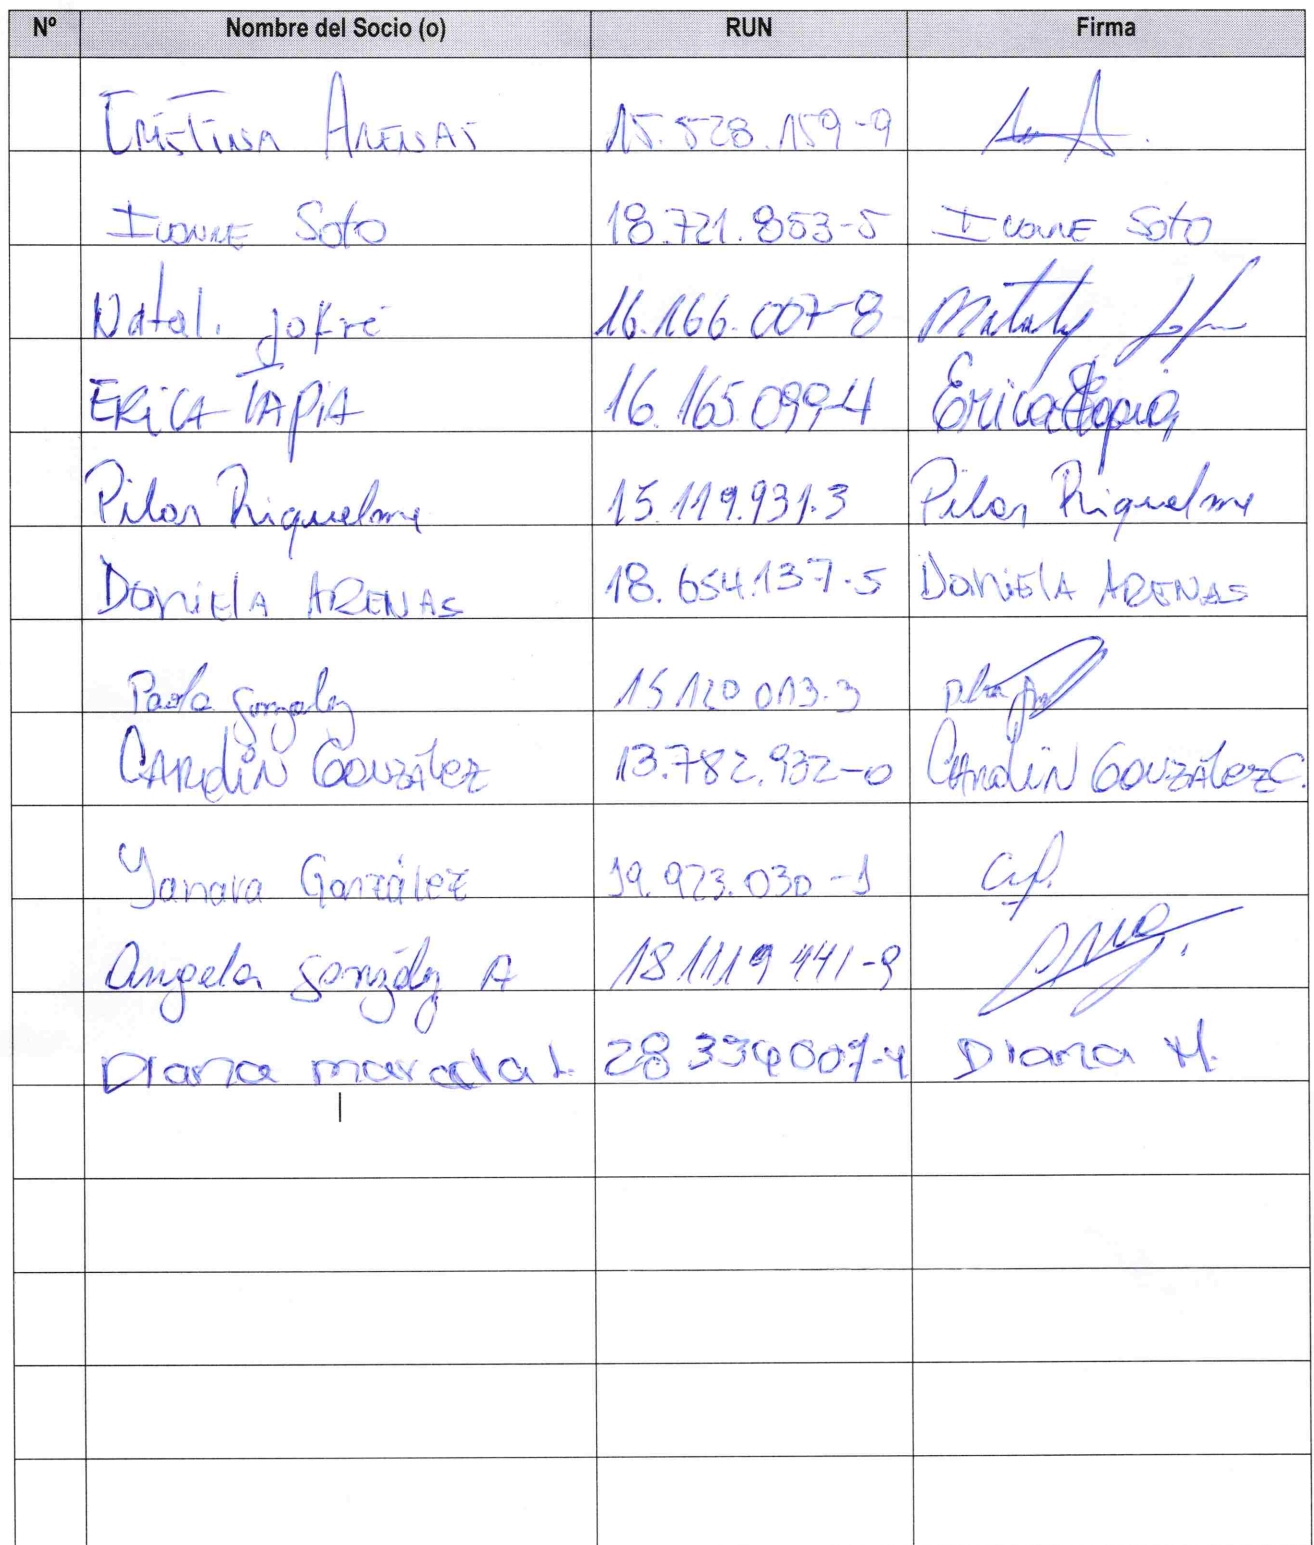 Nº Nombre del Socio (o) RUN Firma
Cristina Arenas 15.528.159-9
Ivonne Soto 18.721.853-5 Ivonne Soto
Natal. Jofré 16.166.007-8 Nataly Jofre
Erica Tapia 16.165.099-4 Erica Tapia
Pilar Riquelme 15.119.931.3 Pilar Riquelme
Daniela Arenas 18.654.137-5 Daniela Arenas
Paola Gonzalez 15 120 013.3
Carolin González 13.782.932-0 Carolin González C.
Yanara González 19.923.030-1
Angela González A 18 119 441-9
Diana L. 28 334007-4 Diana M.